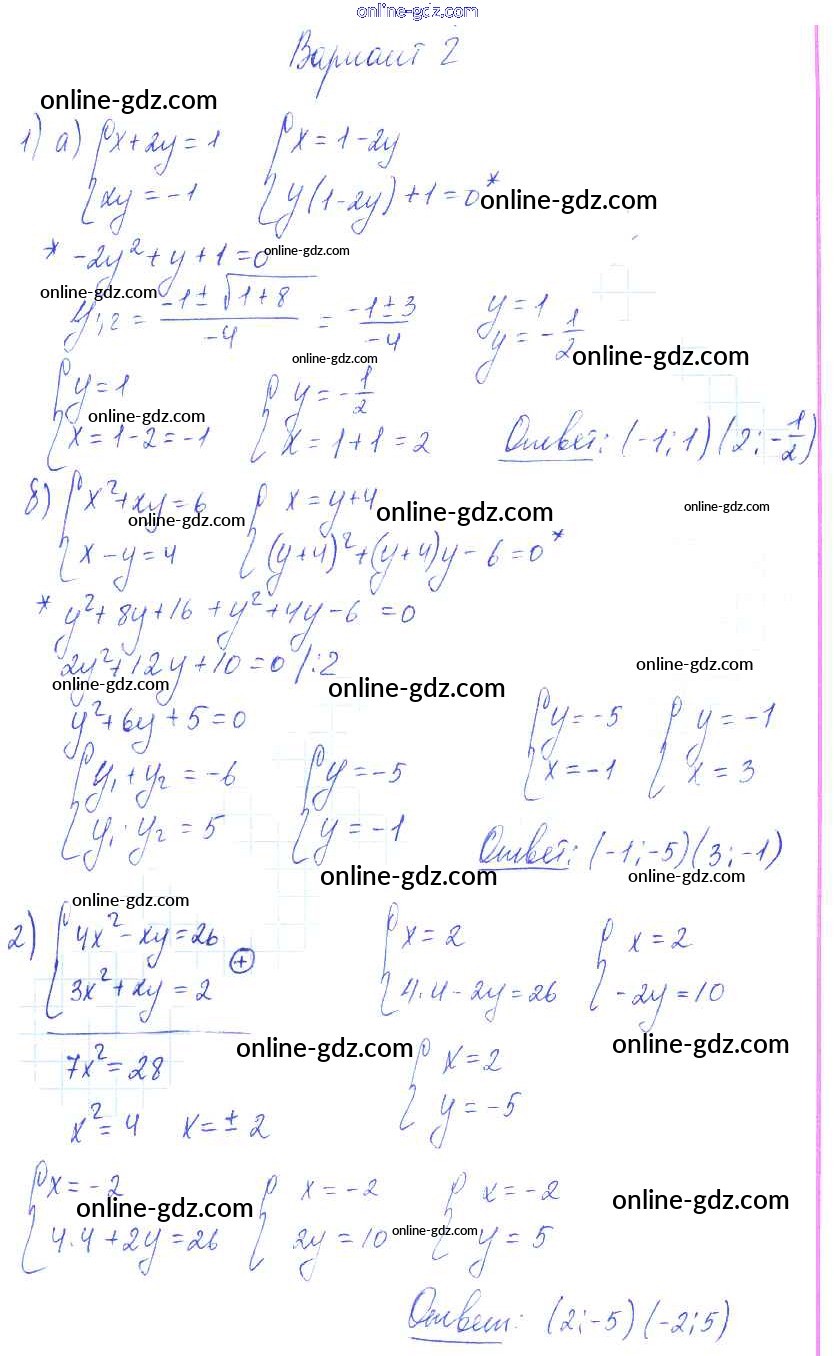 online-gdz.com
Вариант 2
online-gdz.com
1) а) { x + 2y = 1 { x = 1 - 2y
xy = -1 y(1-2y) + 1 = 0* online-gdz.com
* -2y² + y + 1 = 0 online-gdz.com
online-gdz.com
y₁,₂ = (-1 ± √(1+8))/(-4) = (-1 ± 3)/(-4) y = 1
y = -1/2
online-gdz.com online-gdz.com
{ y = 1 { y = -1/2
online-gdz.com
x = 1 - 2 = -1 x = 1 + 1 = 2 Ответ: (-1; 1) (2; -1/2)
б) { x² + xy = 6 { x = y + 4
online-gdz.com online-gdz.com online-gdz.com
x - y = 4 (y+4)² + (y+4)y - 6 = 0*
* y² + 8y + 16 + y² + 4y - 6 = 0
2y² + 12y + 10 = 0 /:2
online-gdz.com online-gdz.com online-gdz.com
y² + 6y + 5 = 0 { y = -5 { y = -1
x = -1 x = 3
{ y₁ + y₂ = -6 { y = -5
y₁ · y₂ = 5 y = -1
Ответ: (-1; -5) (3; -1)
online-gdz.com online-gdz.com
online-gdz.com
2) { 4x² - xy = 26 ⊕ { x = 2 { x = 2
3x² + xy = 2 4·4 - 2y = 26 -2y = 10
online-gdz.com online-gdz.com
7x² = 28 { x = 2
y = -5
x² = 4 x = ± 2
{ x = -2 { x = -2 { x = -2
online-gdz.com online-gdz.com online-gdz.com
4·4 + 2y = 26 2y = 10 y = 5
Ответ: (2; -5) (-2; 5)